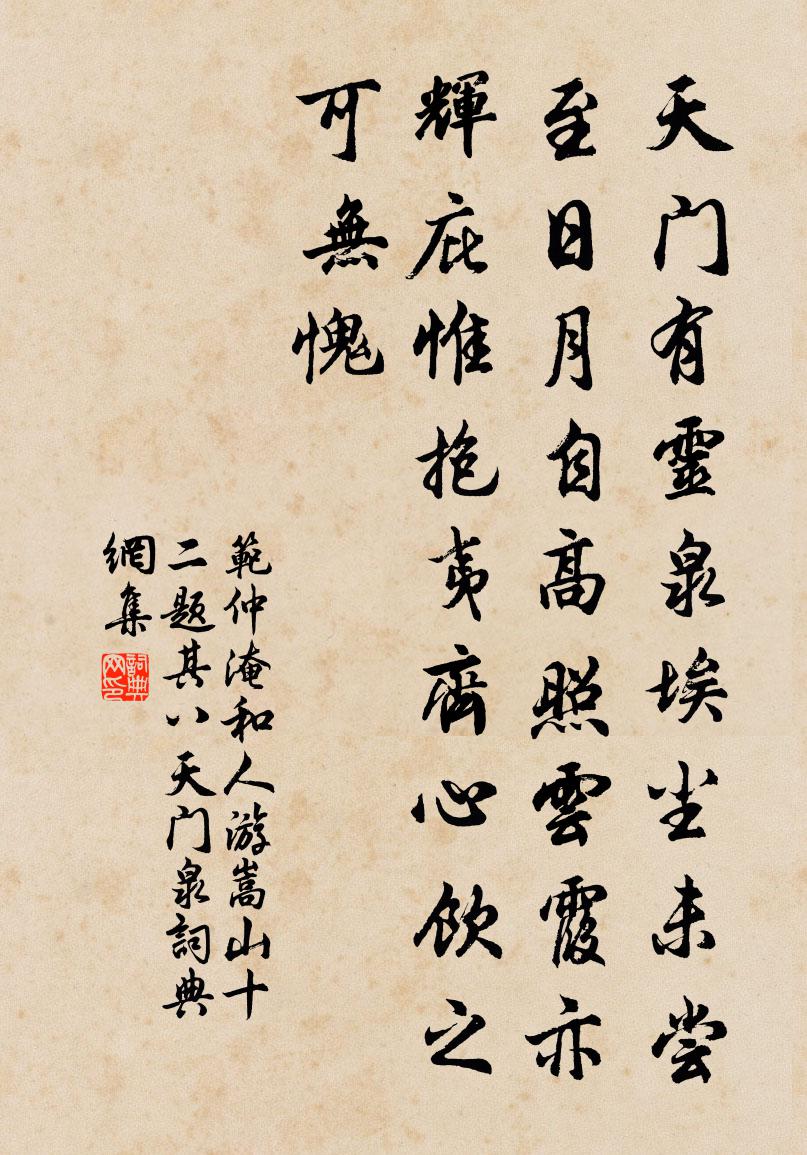 天门有靈泉埃尘未尝
至日月自高照雲霞亦
輝庇惟抱夷齊心飲之
可無愧
範仲淹和人游嵩山十
二题其八天门泉詞典
網集
詞典
网印